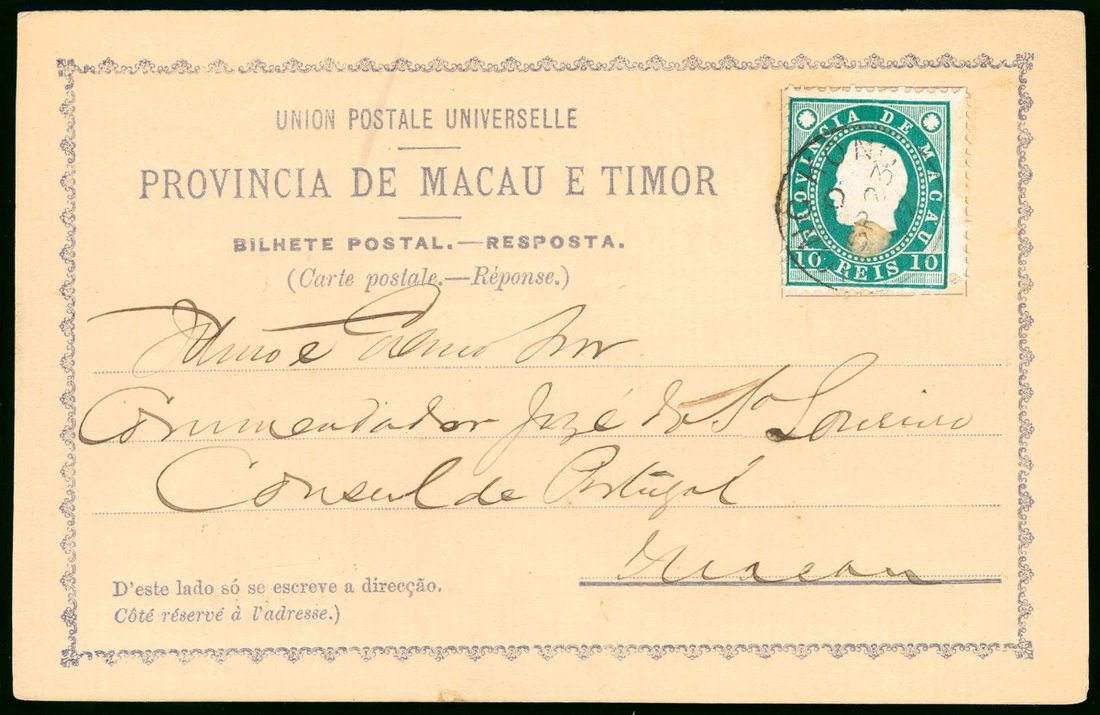 UNION POSTALE UNIVERSELLE
PROVINCIA DE MACAU E TIMOR
BILHETE POSTAL.—RESPOSTA.
(Carte postale.—Réponse.)
PROVINCIA DE MACAU
10 REIS 10
Illmo e Exmo Snr
Commendador José da Sa Loureiro
Consul de Portugal
Macau
D'este lado só se escreve a direcção.
Côté réservé à l'adresse.)